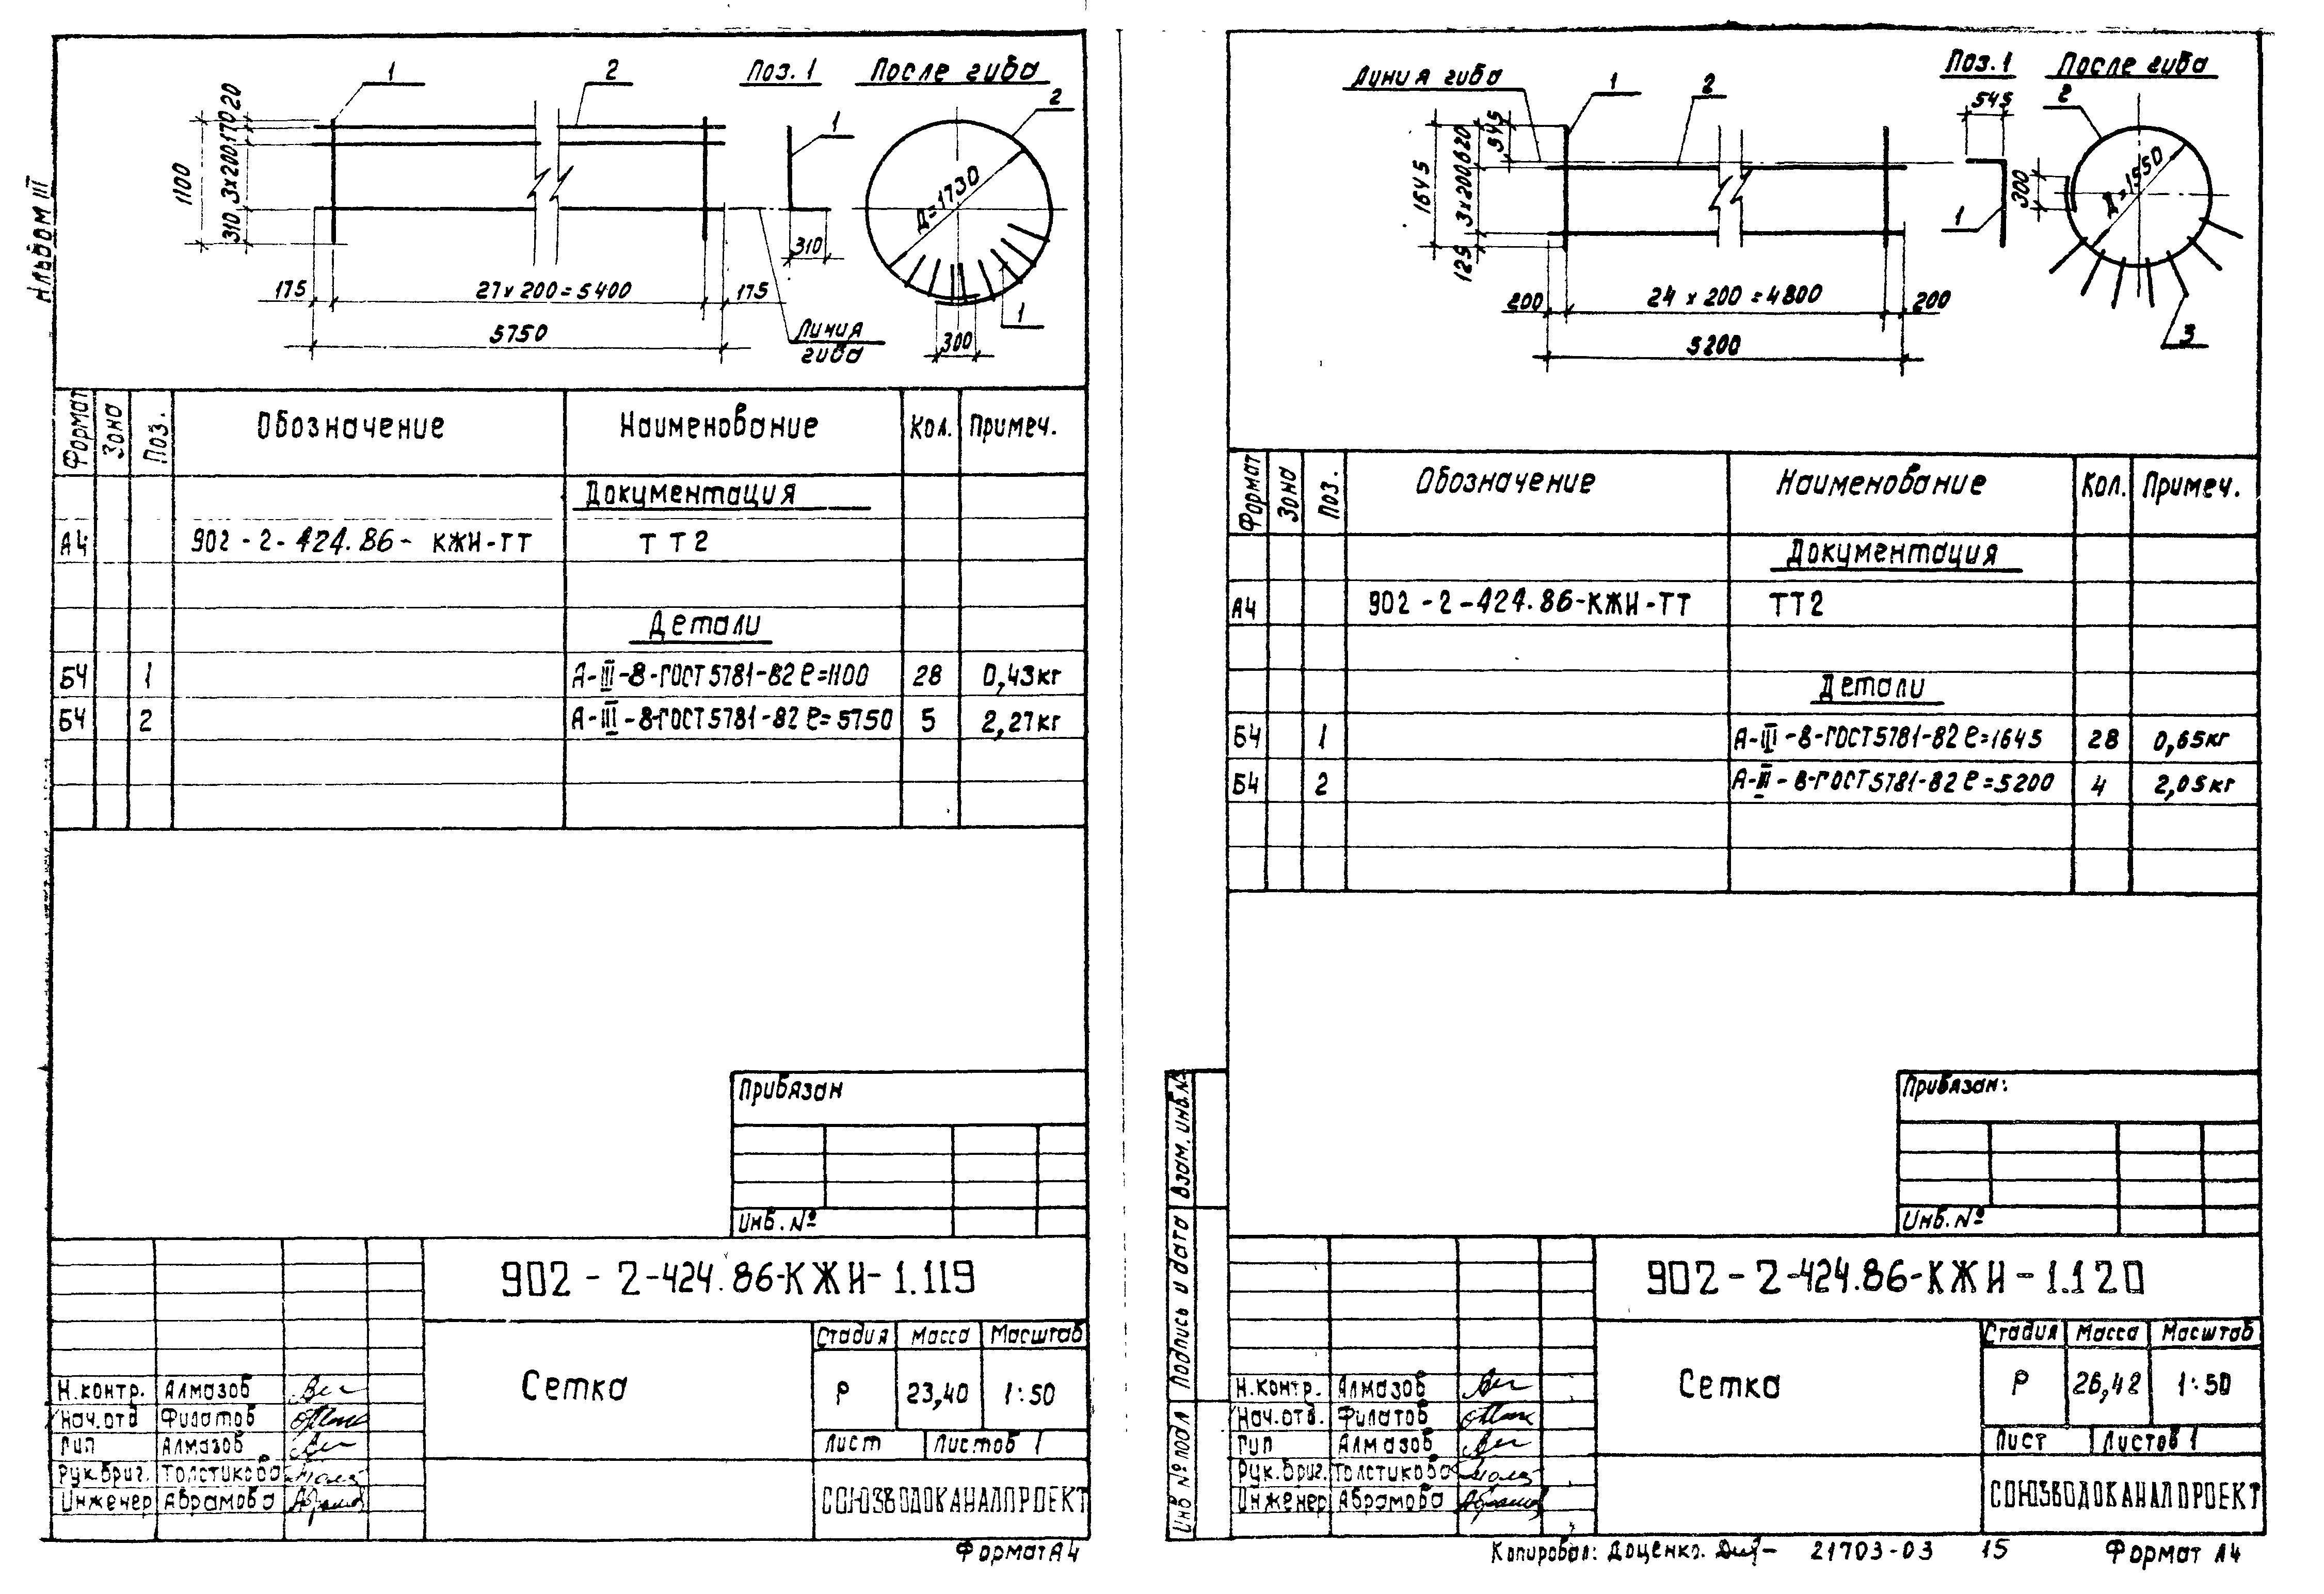 Альбом III
1
2
Поз. 1
После гиба
1100
310, 3х200, 170 20
1
2
Д=1730
310
175
27х200=5400
175
5750
Линия гиба
300
1
Формат Зона Поз. Обозначение Наименование Кол. Примеч.
Документация
А4 902-2-424.86- КЖИ-ТТ ТТ2
Детали
БЧ 1 А-III-8-ГОСТ5781-82 ℓ=1100 28 0,43кг
БЧ 2 А-III-8-ГОСТ5781-82 ℓ=5750 5 2,27кг
Привязан
Инв. №
902-2-424.86-КЖИ-1.119
Сетка
Стадия Масса Масштаб
Р 23,40 1:50
Лист Листов 1
СОЮЗВОДОКАНАЛПРОЕКТ
Н.контр. Алмазов
Нач.отд Филатов
Гип Алмазов
Рук.бриг. Толстикова
Инженер Абрамова
Формат А4
Линия гиба
1
2
Поз. 1
После гиба
545
2
1645
125 3х200 620
545
300
Д=1550
1
200
24 х 200 = 4800
200
5200
3
Формат Зона Поз. Обозначение Наименование Кол. Примеч.
Документация
А4 902-2-424.86-КЖИ-ТТ ТТ2
Детали
БЧ 1 А-III-8-ГОСТ5781-82 ℓ=1645 28 0,65кг
БЧ 2 А-III-8-ГОСТ5781-82 ℓ=5200 4 2,05кг
Привязан:
Инв. №
Взам. инв.№
Подпись и дата
Инв № подл
902-2-424.86-КЖИ-1.120
Сетка
Стадия Масса Масштаб
Р 26,42 1:50
Лист Листов 1
СОЮЗВОДОКАНАЛПРОЕКТ
Н.контр. Алмазов
Нач.отд. Филатов
Гип Алмазов
Рук.бриг. Толстикова
Инженер Абрамова
Копировал: Доценко. 21703-03 15 Формат А4